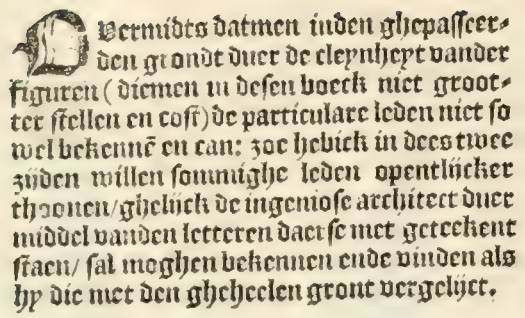 Overmidts datmen inden ghepasseer-
den grondt duer de cleynheyt vander
figuren (diemen in desen boeck niet groot-
ter stellen en cost) de particulare leden niet so
wel bekennē en can: zoe hebick in dees twee
zijden willen sommighe leden opentlijcker
thoonen/ghelijck de ingeniose architect duer
middel vanden letteren daer se met geteekent
staen/ sal moghen bekennen ende vinden als
hy die met den gheheelen gront vergelijct.